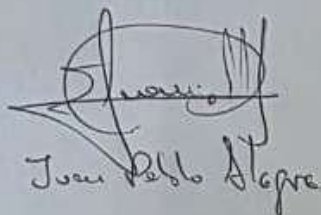 Juan Pablo Alegre